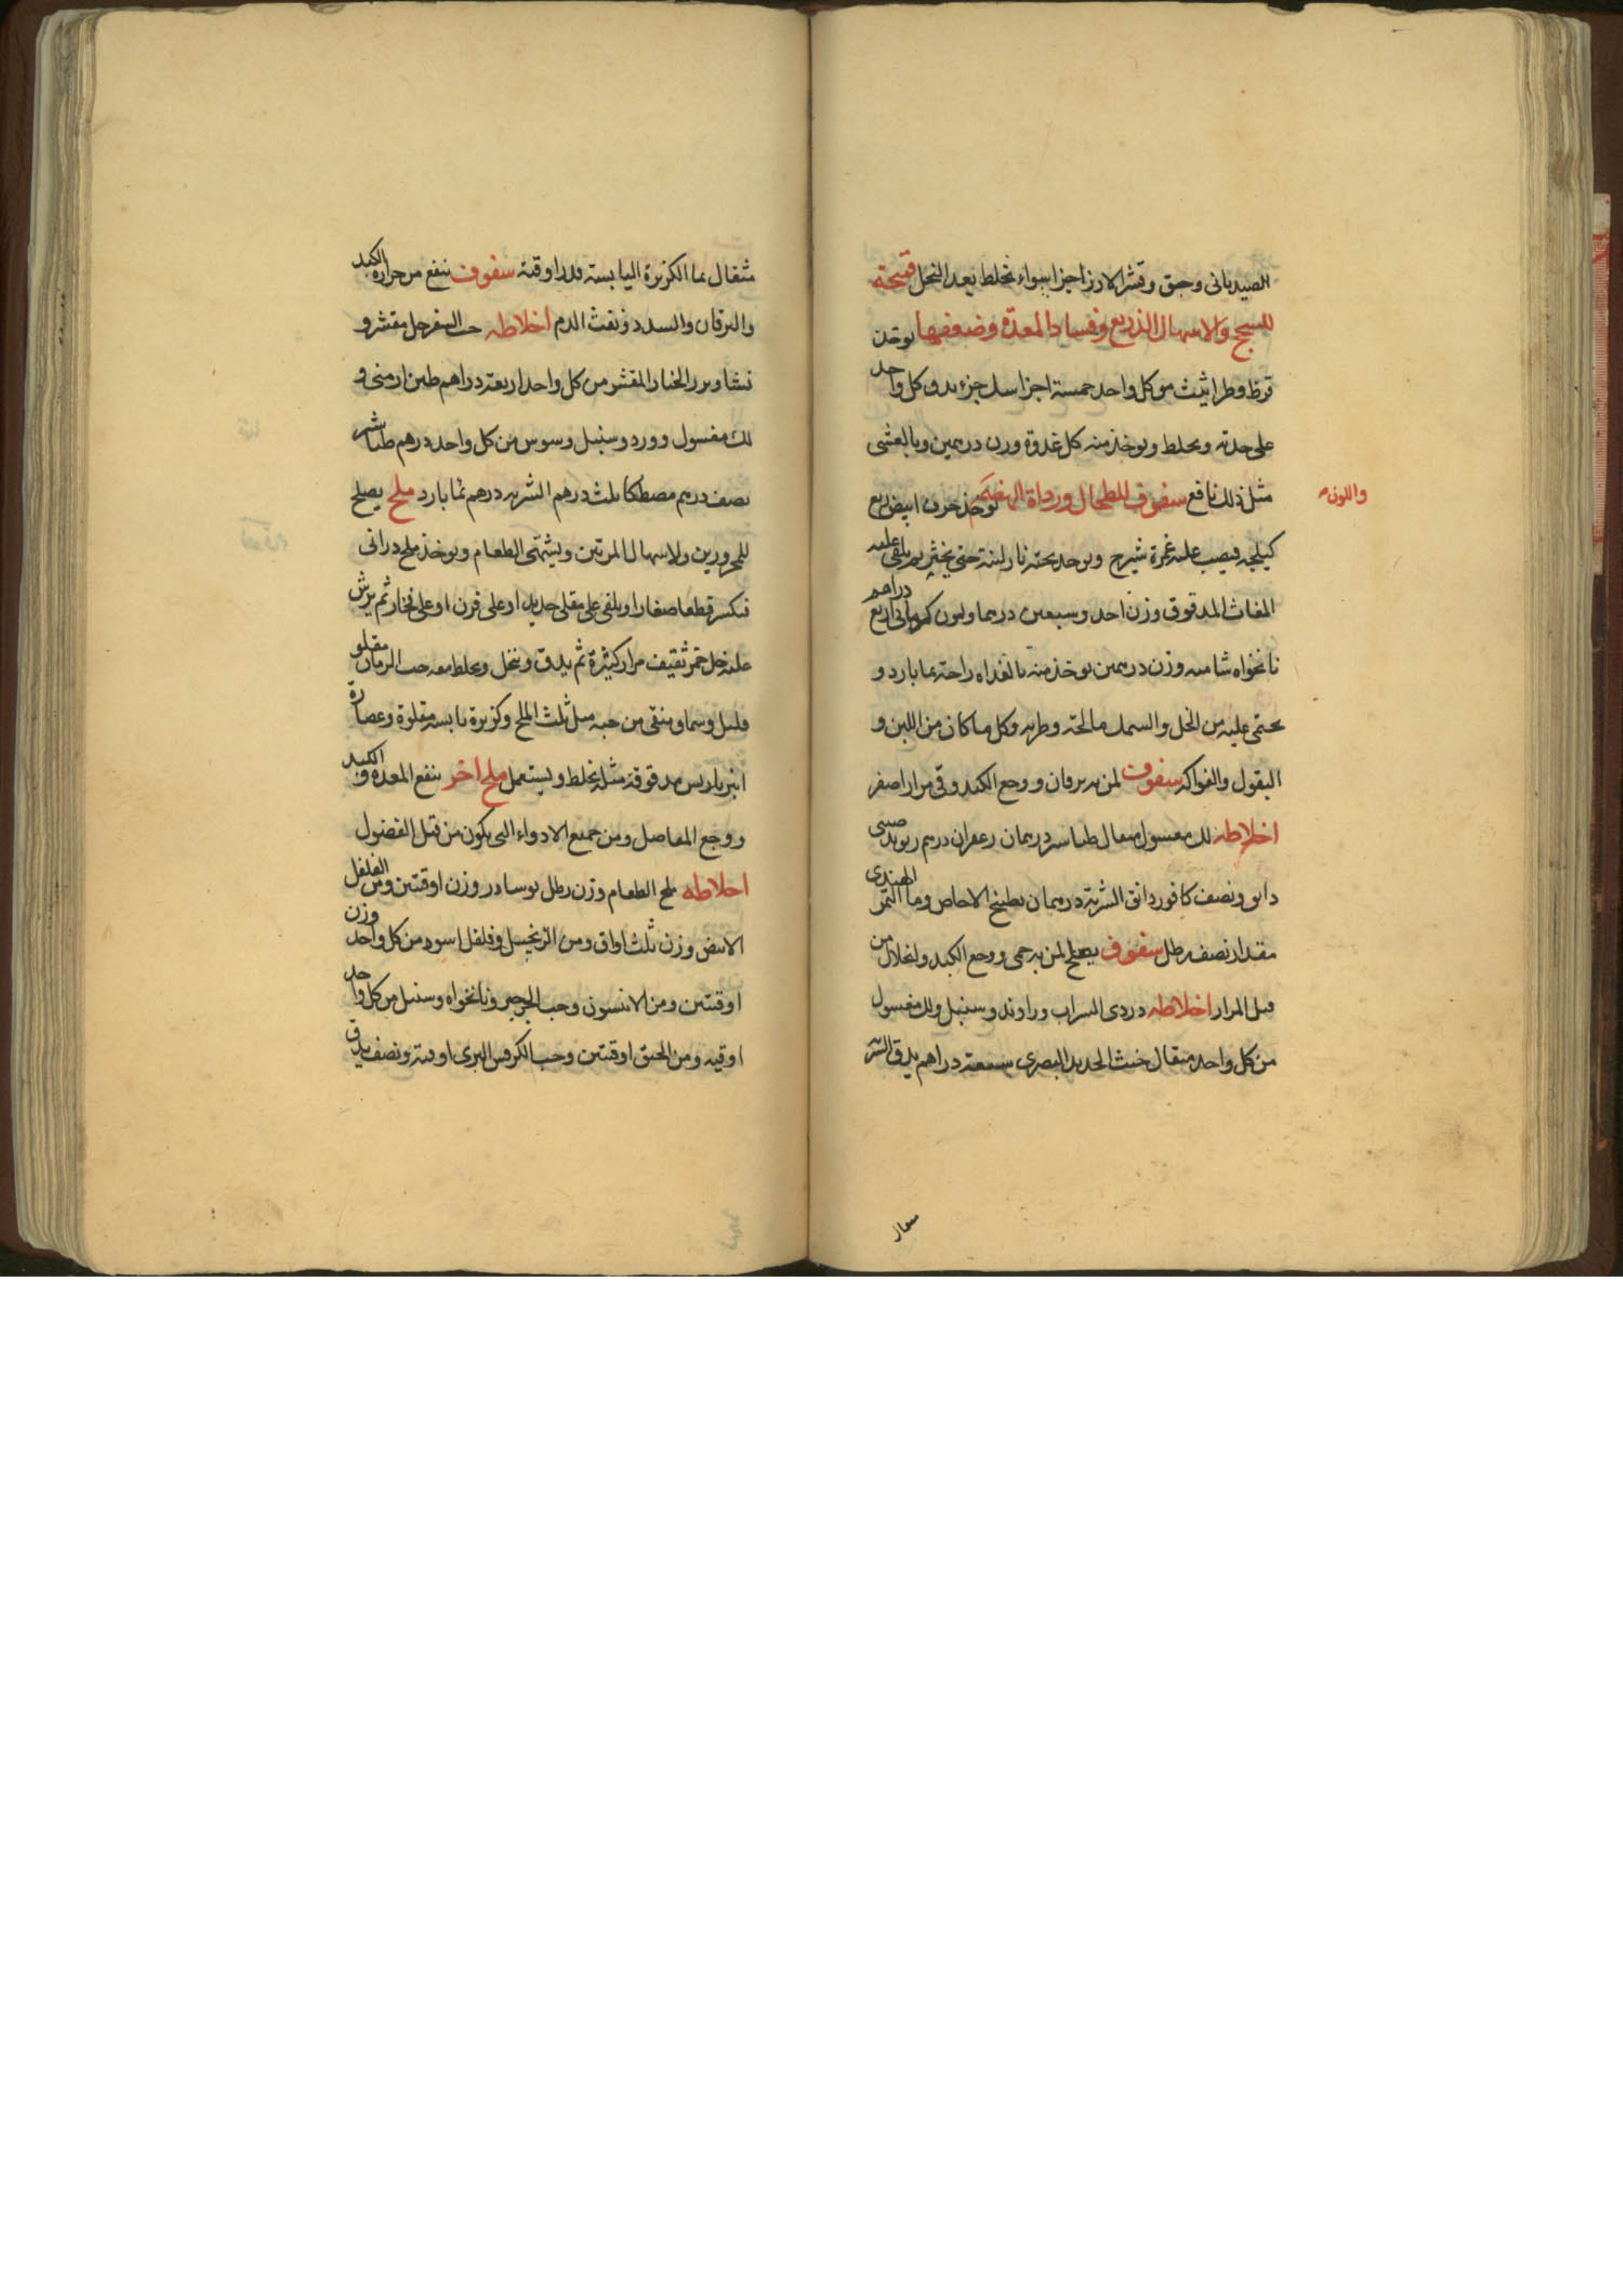 الصيدبانى وحبق وقشر الارز اجزا سواء تخلط بعد النخل قمحة
للسحج والاسهال الذريع وفساد المعدة وضعفها يوخذ
قرظ وطراثيث من كل واحد خمسة اجزا سك جزء يدق كل واحد
على حدته ويخلط ويوخذ منه كل غدوة وزن درهمين وبالعشى
مثل ذلك نافع سفوف للطحال ورداة الهضم يوخذ حرف ابيض ربع
واللون
كيلجه فيصب عليه غمرة شيرج ويوخذ تحته نار لينة حتى يخثر ثم يلقى عليه
المغاث المدقوق وزن احد وسبعين درهما وكمون كرمانى اربع دراهم
نانخواه شاميه وزن درهمين يوخذ منه بالغداه راحة بما بارد و
يحتمى عليه من الخل والسمك مالحه وطريه وكل ما كان من اللبن و
البقول والفواكه سفوف لمن به يرقان ووجع الكبد وقى مرار اصفر
اخلاطه لك مغسول مثقال طباشير درهمان زعفران درهم ريوند صينى
دانق ونصف كافور دانق الشربة درهمان بطبيخ الاجاص وما التمر الهندى
مقدار نصف رطل سفوف يصلح لمن به حمى ووجع الكبد وانحلال من
قبل المرار اخلاطه دردى الشراب وراوند وسنبل ولك مغسول
من كل واحد مثقال خبث الحديد البصرى سبعة دراهم يدق الشربة
مثقال
مثقال بما الكزبرة اليابسة قدر اوقية سفوف ينفع من حرارة الكبد
واليرقان والسدد ونفث الدم اخلاطه حب السفرجل مقشر و
نشا وبزر الخيار المقشر من كل واحد اربعة دراهم طين ارمنى و
لك مغسول وورد وسنبل وسوس من كل واحد درهم طباشير
نصف درهم مصطكا ثلث درهم الشربه درهم بما بارد ملح يصلح
للمحرورين ولاسهال المرتين ويشهى الطعام ويوخذ ملح درانى
فيكسر قطعا صغارا ويلقى على مقلى حديد او على فرن او على فخار ثم يرش
عليه خل خمر ثقيف مرار كثيرة ثم يدق وينخل ويخلط معه حب الرمان مقلو
قليل وسماق منقى من حبه مثل ثلث الملح وكزبرة يابسه مقلوة وعصارة
انبرباريس مدقوقة مثله يخلط ويستعمل ملح اخر ينفع المعدة والكبد
ووجع المفاصل ومن جميع الادواء التى يكون من قبل الفضول
اخلاطه ملح الطعام وزن رطل نوسادر وزن اوقيتين ومن الفلفل
الابيض وزن ثلث اواق ومن الزنجبيل وفلفل اسود من كل واحد وزن
اوقيتين ومن الانيسون وحب الجرجير ونانخواه وسنبل من كل واحد
اوقيه ومن الحبق اوقيتين وحب الكرفس البرى اوقية ونصف يدق